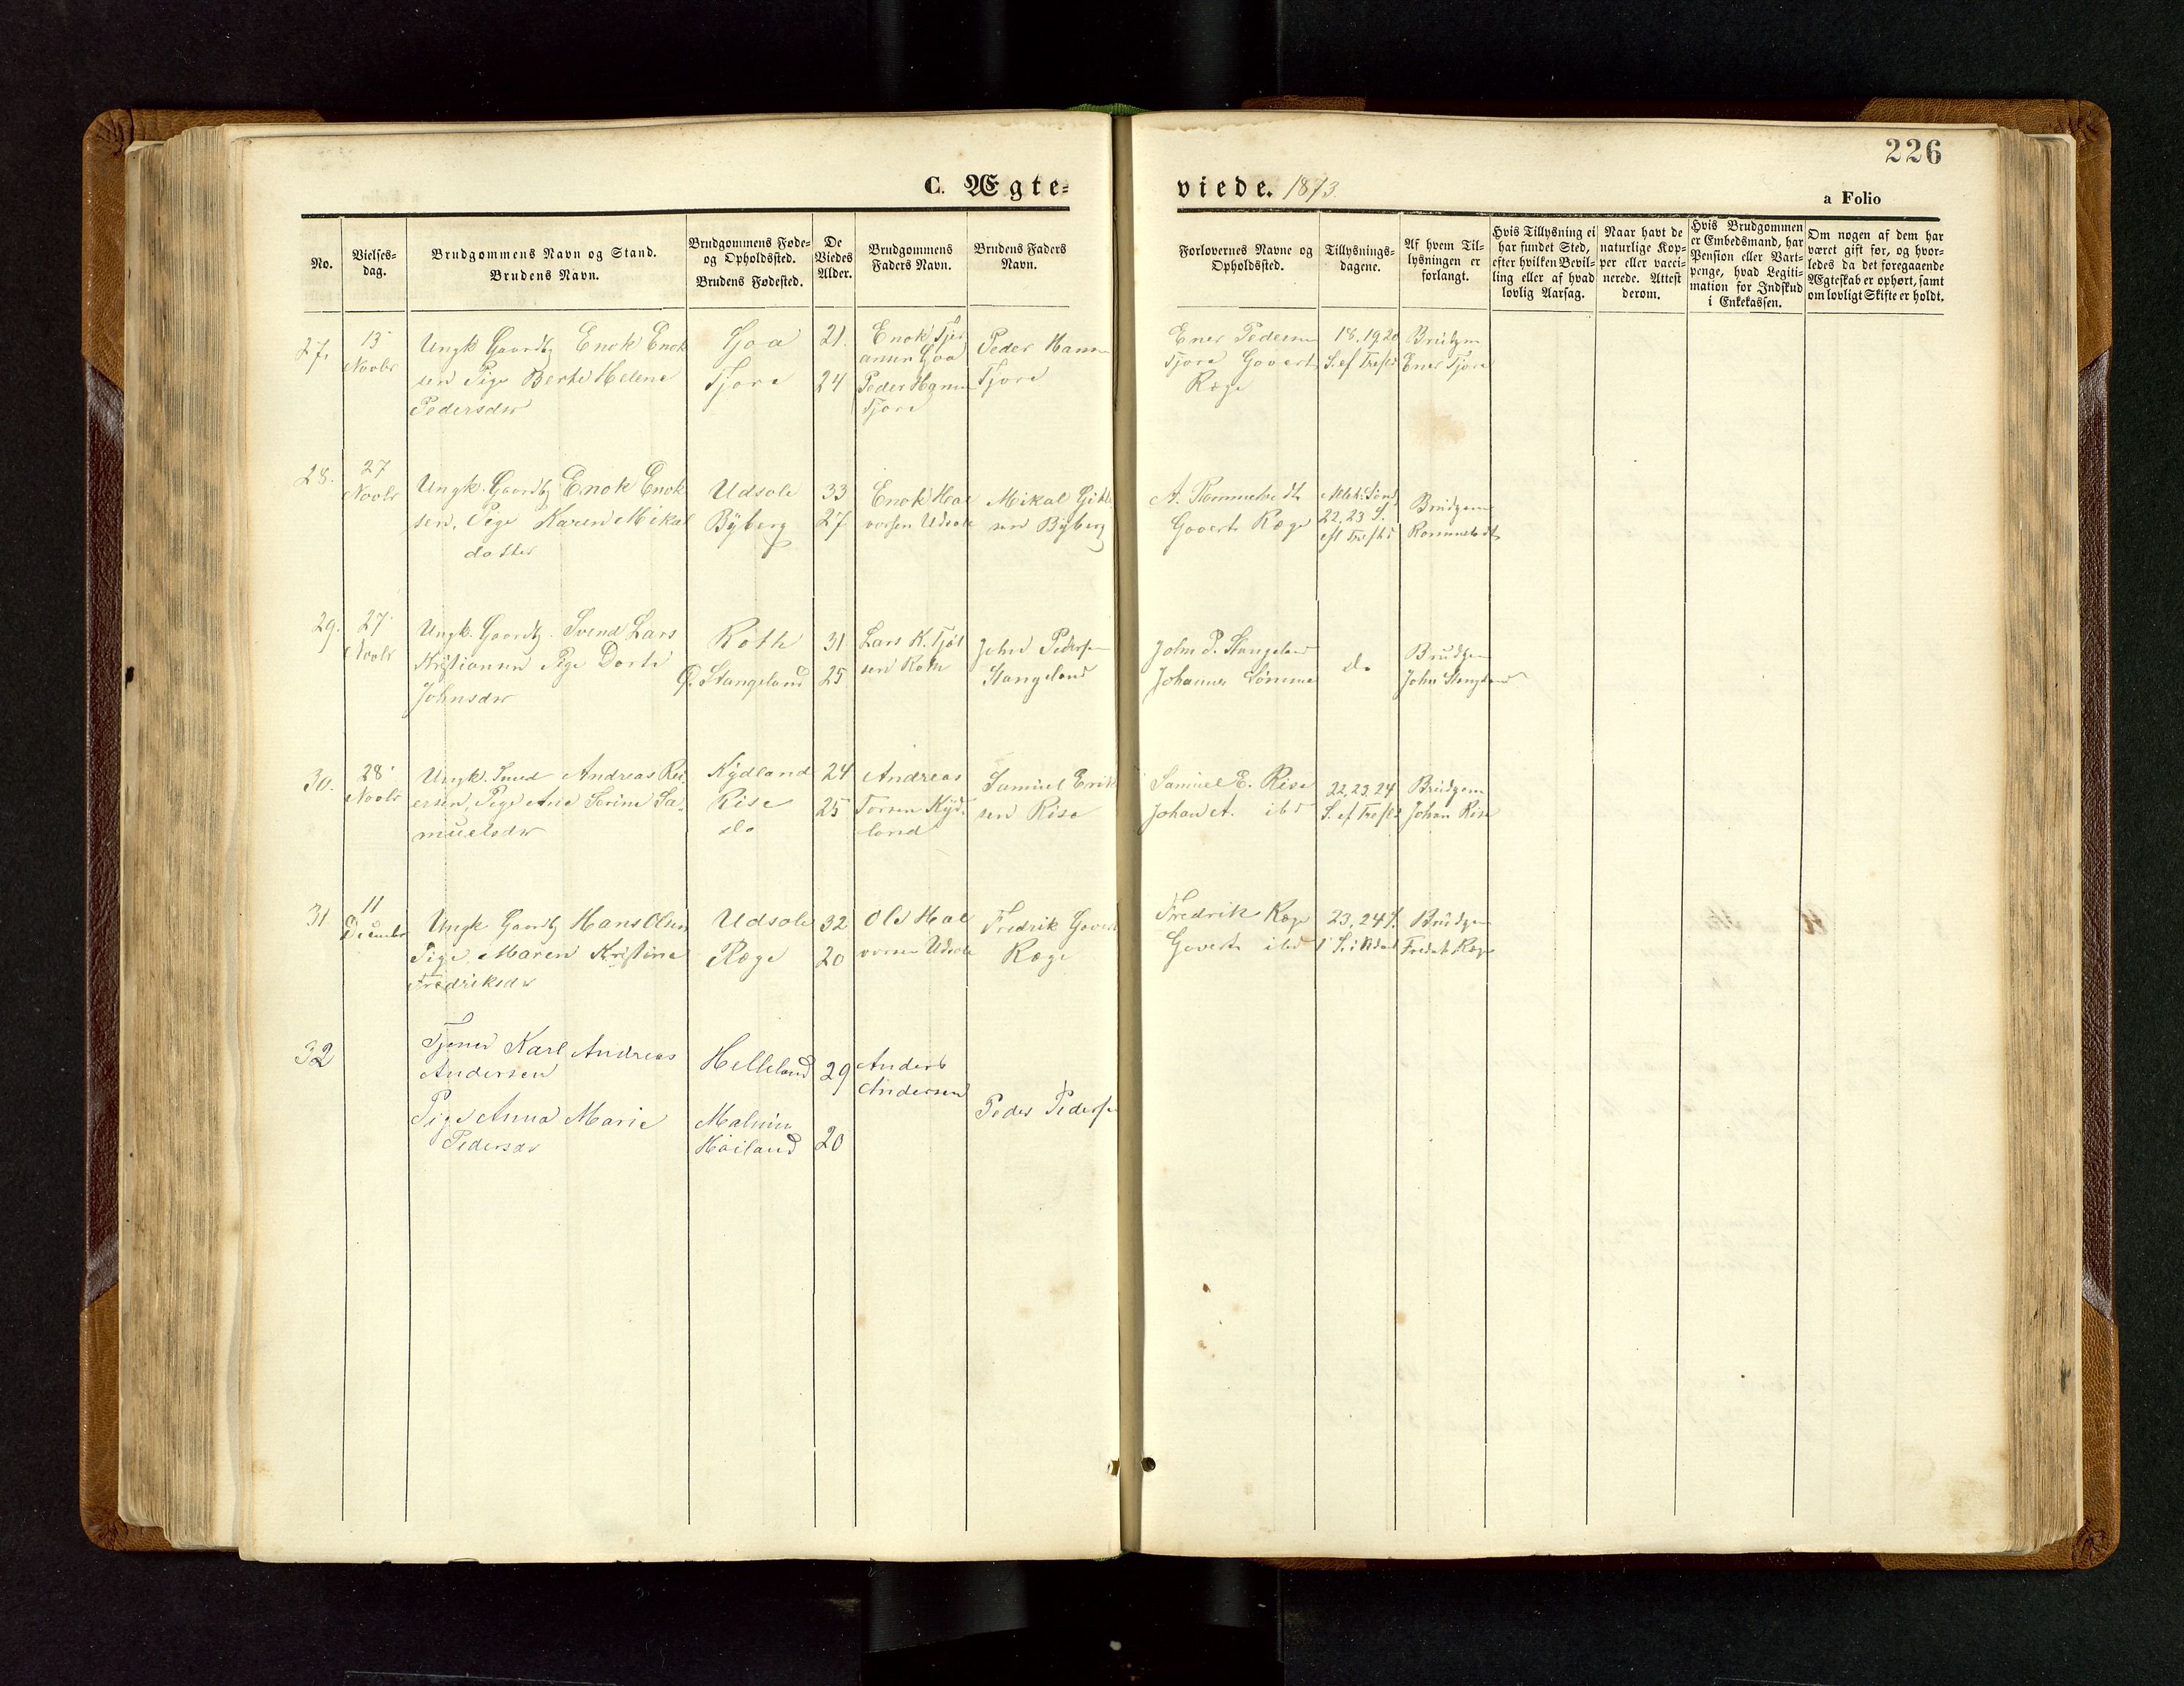 226
C. Ægte=
viede. 1873.
a Folio
No.
Vielses=
dag.
Brudgommens Navn og Stand.
Brudens Navn.
Brudgommens Føde=
og Opholdssted.
Brudens Fødested.
De
Viedes
Alder.
Brudgommens
Faders Navn.
Brudens Faders
Navn.
Forlovernes Navne og
Opholdssted.
Tillysnings=
dagene.
Af hvem Til=
lysningen er
forlangt.
Hvis Tillysning ei
har fundet Sted,
efter hvilken Bevil=
ling eller af hvad
lovlig Aarsag.
Naar havt de
naturlige Kop=
per eller vacci=
nerede. Attest
derom.
Hvis Brudgommen
er Embedsmand, har
Pension eller Vart=
penge, hvad Legiti=
mation for Indskud
i Enkekassen.
Om nogen af dem har
været gift før, og hvor=
ledes da det foregaaende
Ægteskab er ophørt, samt
om lovligt Skifte er holdt.
27.
13
Novbr
Ungk Gaardbr Enok Enok
sen Pige Berte Helene
Pedersdtr
Goa
Tjora
21.
24
Enok
Goa
Peder Hansen
Tjora
Peder Hansen
Tjora
Ener Pedersen
Tjora Govert
Rege
18, 19, 20
S. ef Trefs
Brudgm
Ener Tjora
28.
27
Novbr
Ungk. Gaardbr Enok Enok
sen, Pige Karen Mikal
datter
Udsola
Byberg
33
27
Enok Hal
vorsen Udsola
Mikal
sen Byberg
A. Rommetvedt
Govert Rege
22, 23 S.
eft Trefs
Brudgm
Rommetvedt
29.
27
Novbr
Ungk. Gaardbr. Svend Lars
Kristiansen Pige Dorte
Johnsdtr
Roth
Stangeland
31
25
Lars K. Tjøl
sen Roth
John Pedersen
Stangeland
John P. Stangeland
Johannes Sømme
do
Brudgm
John Stangeland
30.
28
Novbr
Ungk. Smed Andreas Rei
ersen, Pige Ane Serine Sa=
muelsdtr
Kydland
Rise
do
24
25
Andreas
Torsen Kyd=
land
Samuel Erik
sen Rise
Samuel E. Rise
Johan A. ibd
22, 23, 24
S. ef Trefs
Brudgm
Johan Rise
31
11
December
Ungk Gaardbr Hans Olsen
Pige Maren Kristine
Fredriksdtr
Udsola
Rege
32
20
Ole Hal
vorsen Udsola
Fredrik Govert
Rege
Fredrik Rege
Govert ibd
23, 24
Brudgm
Fredrik Rege
32
Tjener Karl Andreas
Andersen
Pige Anna Marie
Pedersdr
Helleland
Malmin
Høiland
29
20
Anders
Andersen
Peder Pedersen